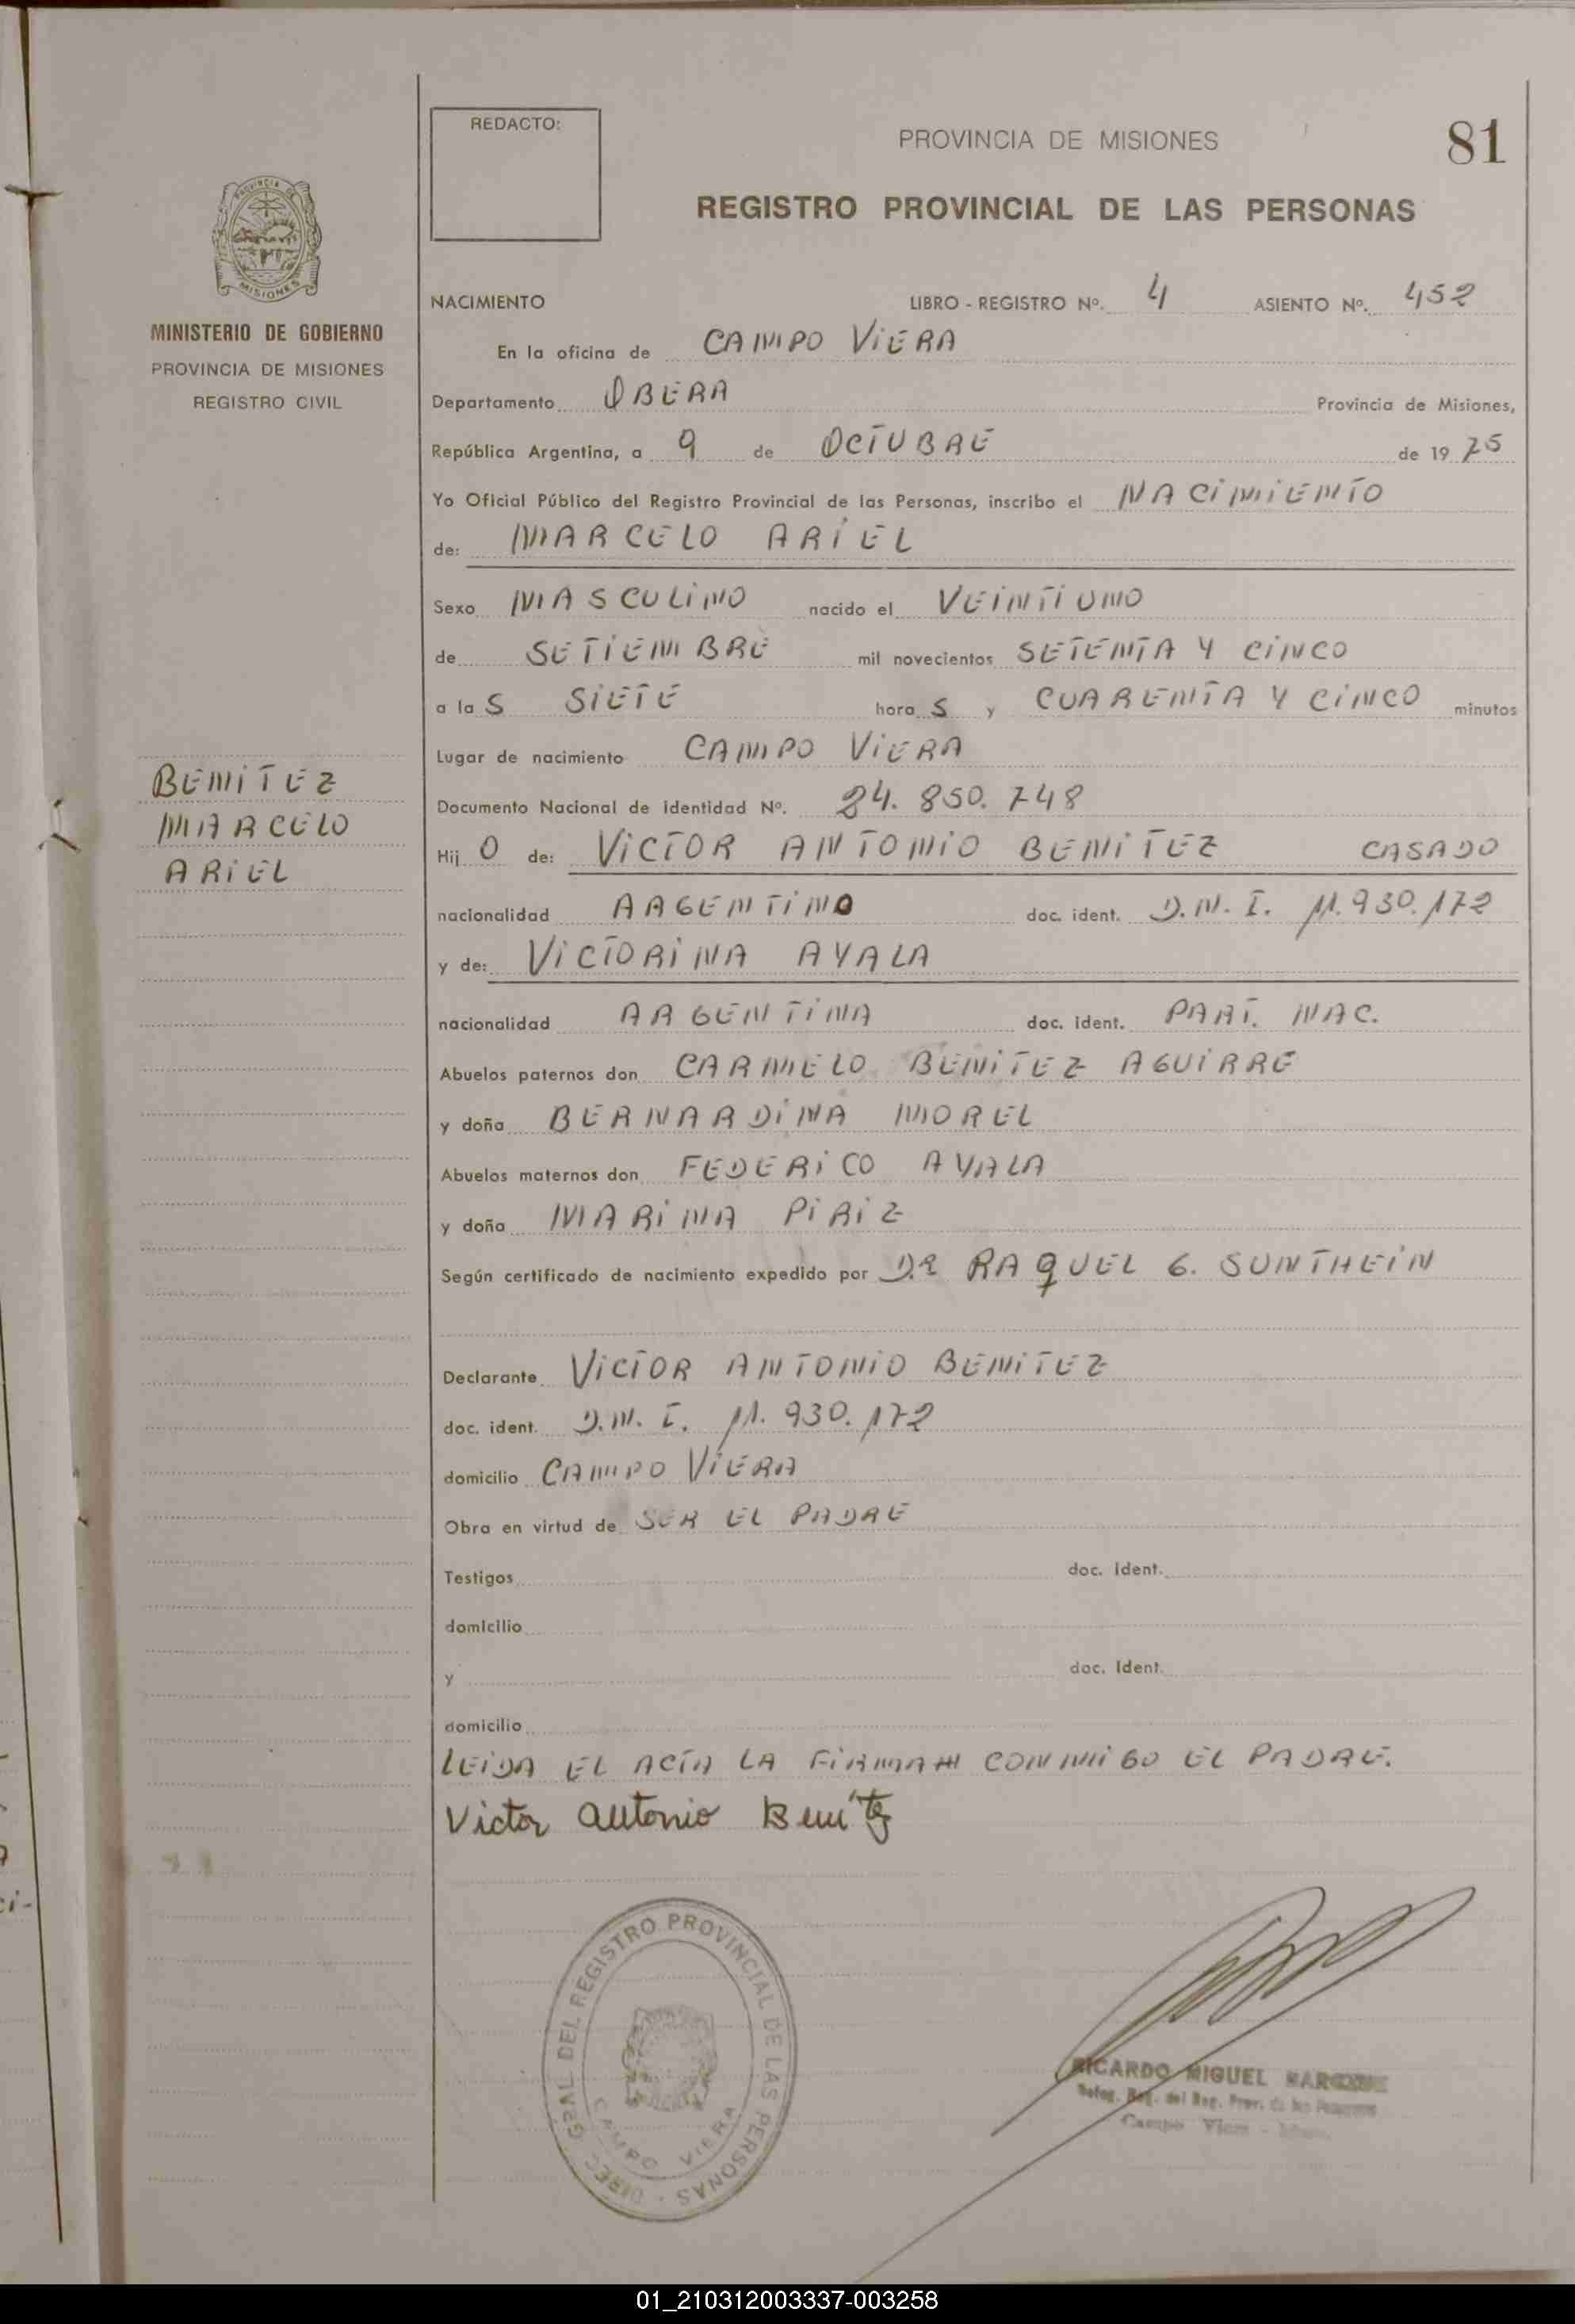 REDACTO:
PROVINCIA DE MISIONES
81
REGISTRO PROVINCIAL DE LAS PERSONAS
PROVINCIA DE
MISIONES
MINISTERIO DE GOBIERNO
PROVINCIA DE MISIONES
REGISTRO CIVIL
NACIMIENTO LIBRO - REGISTRO Nº. 4 ASIENTO Nº. 452
En la oficina de CAMPO VIERA
Departamento OBERA Provincia de Misiones,
República Argentina, a 9 de OCTUBRE de 19 75
Yo Oficial Público del Registro Provincial de las Personas, inscribo el NACIMIENTO
de: MARCELO ARIEL
Sexo MASCULINO nacido el VEINTIUNO
de SETIEMBRE mil novecientos SETENTA Y CINCO
a la S SIETE hora S y CUARENTA Y CINCO minutos
Lugar de nacimiento CAMPO VIERA
BENITEZ
MARCELO
ARIEL
Documento Nacional de identidad Nº. 24.850.748
Hij O de: VICTOR ANTONIO BENITEZ CASADO
nacionalidad ARGENTINO doc. ident. D.N.I. 11.930.172
y de: VICTORINA AYALA
nacionalidad ARGENTINA doc. ident. PART. NAC.
Abuelos paternos don CARMELO BENITEZ AGUIRRE
y doña BERNARDINA MOREL
Abuelos maternos don FEDERICO AYALA
y doña MARINA PIRIZ
Según certificado de nacimiento expedido por DRA RAQUEL G. SUNTHEIN
Declarante VICTOR ANTONIO BENITEZ
doc. ident. D.N.I. 11.930.172
domicilio CAMPO VIERA
Obra en virtud de SER EL PADRE
Testigos doc. Ident.
domicilio
y doc. Ident.
domicilio
LEIDA EL ACTA LA FIRMAN CONMIGO EL PADRE.
Victor Antonio Benítez
DIREC. GRAL DEL REGISTRO PROVINCIAL DE LAS PERSONAS
CAMPO VIERA
RICARDO MIGUEL
del Reg. Prov. de las Personas
Campo Viera
01_210312003337-003258